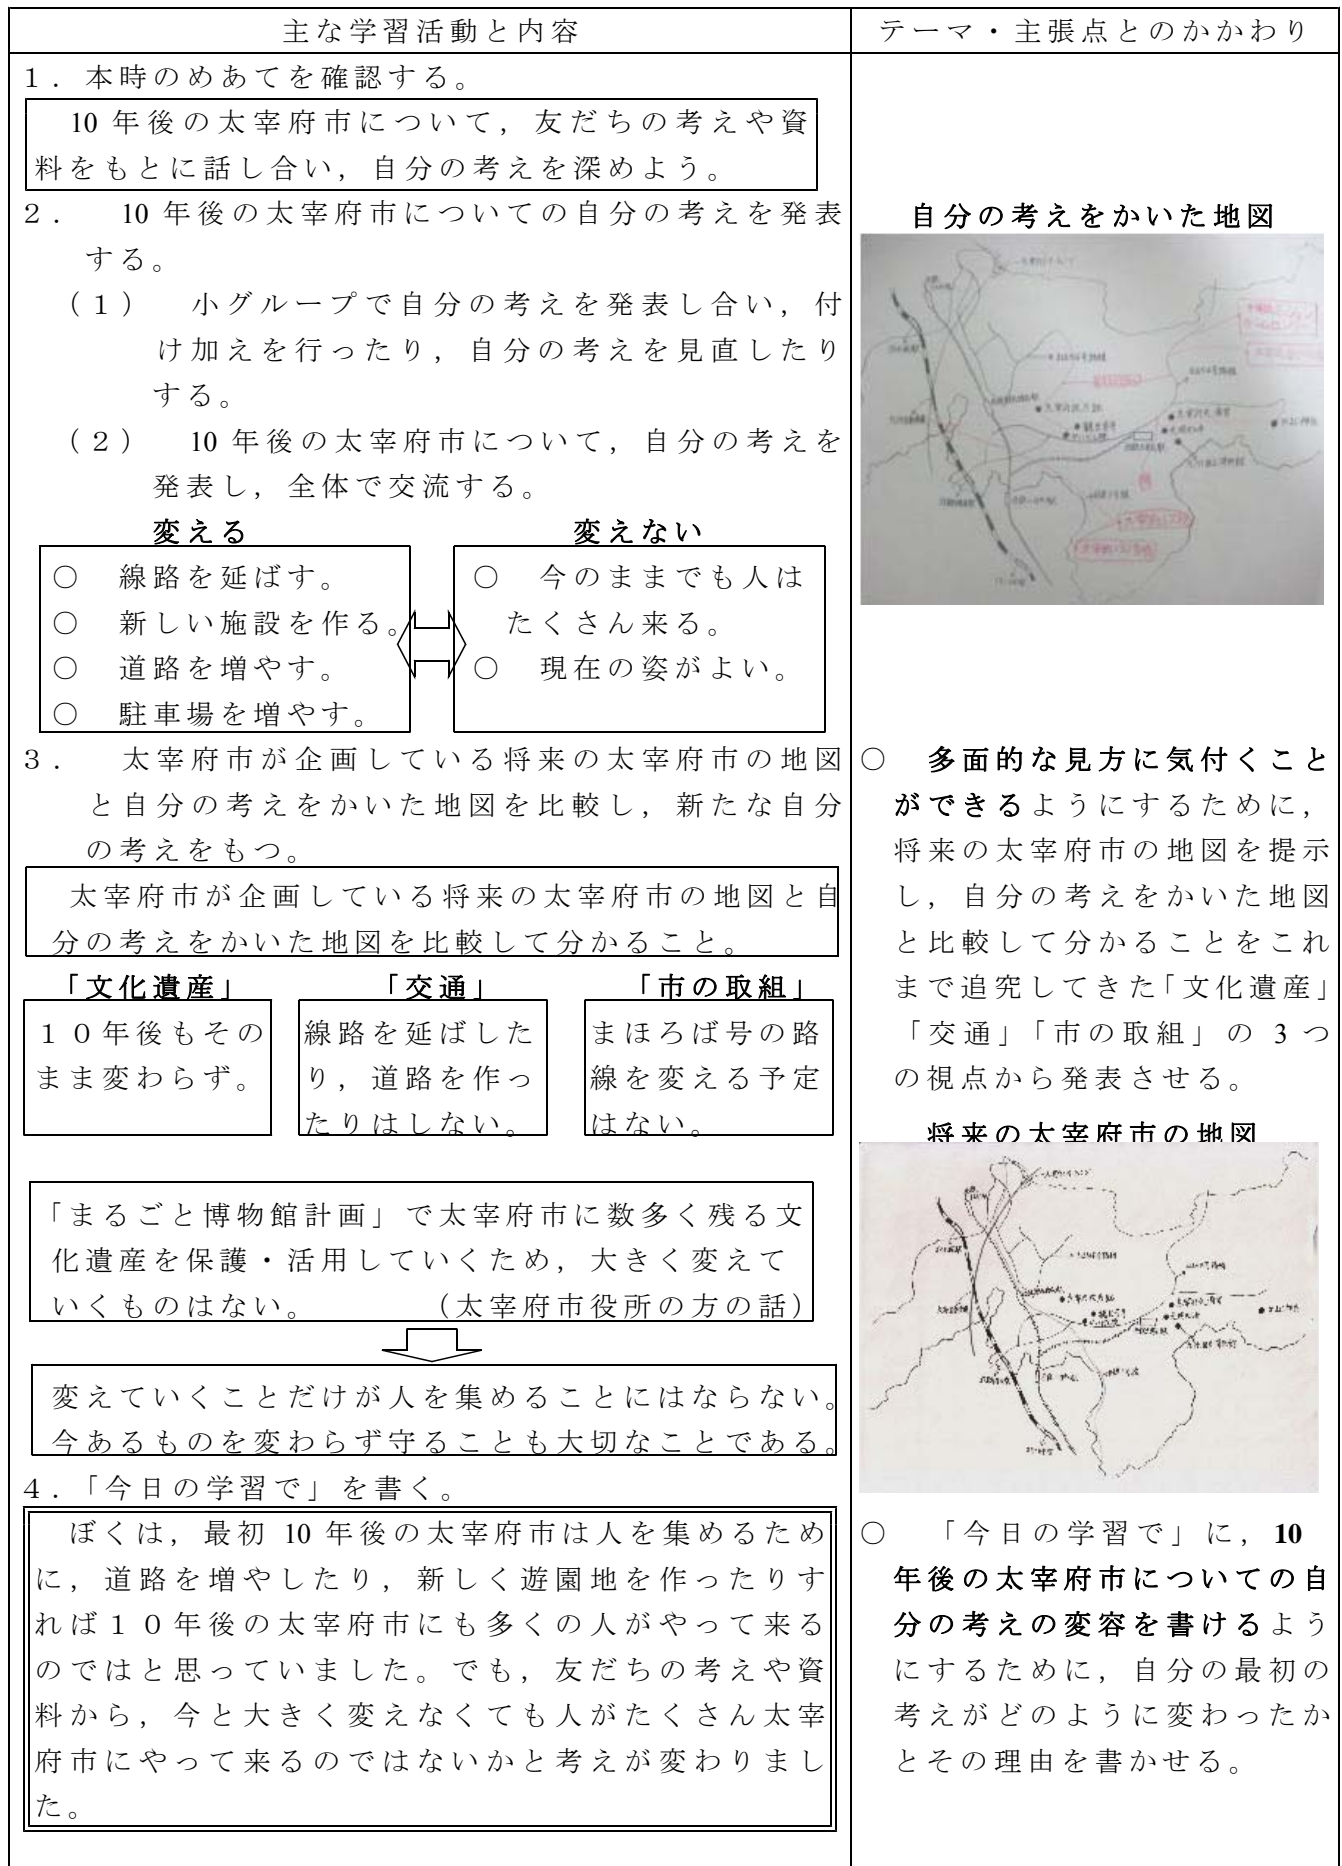 主な学習活動と内容
テーマ・主張点とのかかわり
１．本時のめあてを確認する。
10 年後の太宰府市について，友だちの考えや資
料をもとに話し合い，自分の考えを深めよう。
２．　10 年後の太宰府市についての自分の考えを発表
する。
（１）　小グループで自分の考えを発表し合い，付
け加えを行ったり，自分の考えを見直したり
する。
（２）　10 年後の太宰府市について，自分の考えを
発表し，全体で交流する。
変える
○　線路を延ばす。
○　新しい施設を作る。
○　道路を増やす。
○　駐車場を増やす。
変えない
○　今のままでも人は
たくさん来る。
○　現在の姿がよい。
３．　太宰府市が企画している将来の太宰府市の地図
と自分の考えをかいた地図を比較し，新たな自分
の考えをもつ。
太宰府市が企画している将来の太宰府市の地図と自
分の考えをかいた地図を比較して分かること。
「文化遺産」
１０年後もその
まま変わらず。
「交通」
線路を延ばした
り，道路を作っ
たりはしない。
「市の取組」
まほろば号の路
線を変える予定
はない。
「まるごと博物館計画」で太宰府市に数多く残る文
化遺産を保護・活用していくため，大きく変えて
いくものはない。　（太宰府市役所の方の話）
変えていくことだけが人を集めることにはならない。
今あるものを変わらず守ることも大切なことである。
４．「今日の学習で」を書く。
ぼくは，最初 10 年後の太宰府市は人を集めるため
に，道路を増やしたり，新しく遊園地を作ったりす
れば１０年後の太宰府市にも多くの人がやって来る
のではと思っていました。でも，友だちの考えや資
料から，今と大きく変えなくても人がたくさん太宰
府市にやって来るのではないかと考えが変わりまし
た。
自分の考えをかいた地図
○　多面的な見方に気付くこと
ができるようにするために，
将来の太宰府市の地図を提示
し，自分の考えをかいた地図
と比較して分かることをこれ
まで追究してきた「文化遺産」
「交通」「市の取組」の 3 つ
の視点から発表させる。
将来の太宰府市の地図
○　「今日の学習で」に，10
年後の太宰府市についての自
分の考えの変容を書けるよう
にするために，自分の最初の
考えがどのように変わったか
とその理由を書かせる。